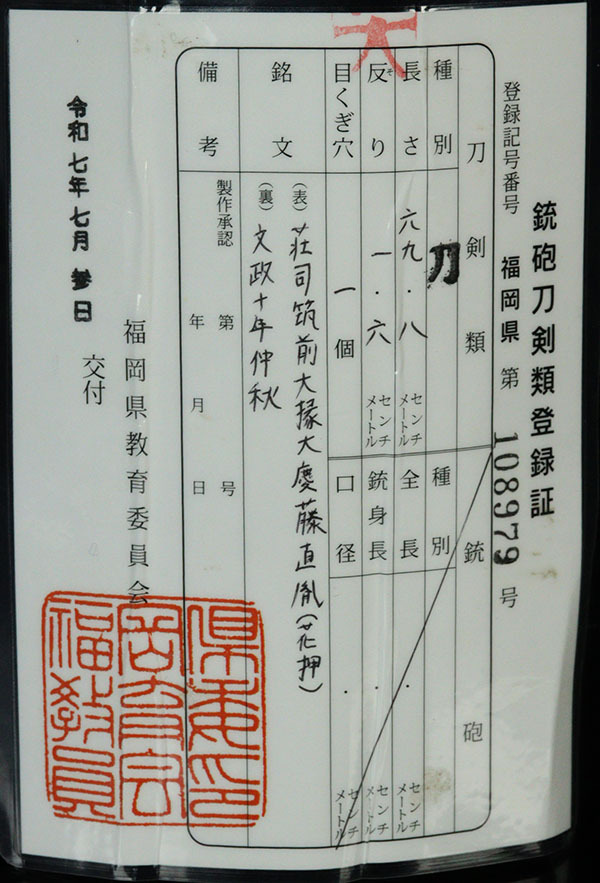 銃砲刀剣類登録証
登録記号番号 福岡県 第 108979 号
刀剣類
銃砲
種別 刀
種別
長さ 六九.八 センチメートル
全長 . センチメートル
反り そ 一.六 センチメートル
銃身長 . センチメートル
目くぎ穴 一個
口径 . センチメートル
銘文
(表) 荘司筑前大掾大慶藤直胤(花押)
(裏) 文政十年仲秋
備考
製作承認 第 号
年 月 日
福岡県教育委員会
令和七年七月参日 交付
県委印
岡育会
福教員